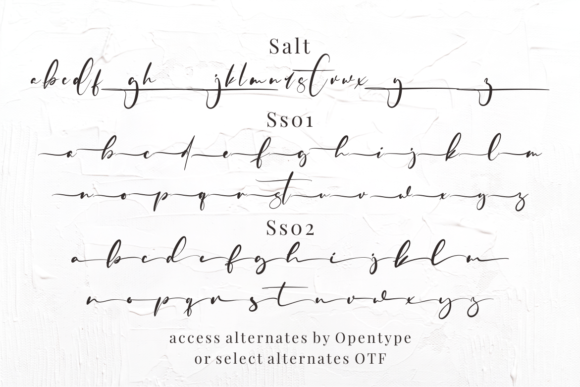 Salt
abcdf gh y z
Ss01
a b c d e f g h i j k l m
n o p q r s t u v w x y z
Ss02
a b c d e f g h i j k l m
n o p q r s t u v w x y z
access alternates by Opentype
or select alternates OTF